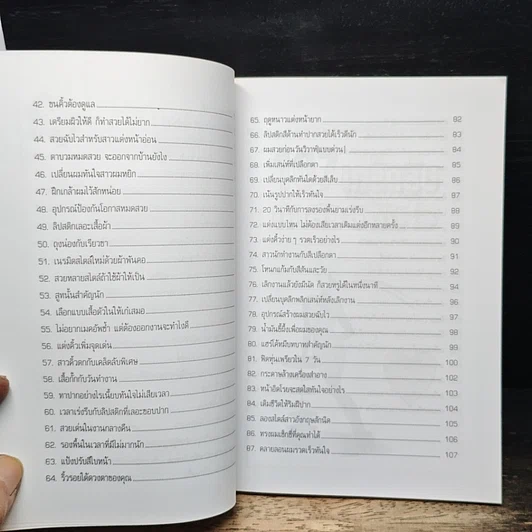 42. ขนคิ้วต้องดูแล
43. เตรียมผิวให้ดี ก็ทำสวยได้ไม่ยาก
44. สวยฉับไวสำหรับสาวแต่งหน้าอ่อน
45. ตาบวมหมดสวย จะออกจากบ้านยังไง
46. เปลี่ยนผมทันใจสาวผมหยิก
47. ฝึกเกล้าผมไว้สักหน่อย
48. อุปกรณ์ป้องกันโอกาสหมดสวย
49. ลิปสติกเลอะเสื้อผ้า
50. ถุงน่องกับเรียวขา
51. เนรมิตสไตล์ใหม่ด้วยผ้าพันคอ
52. สวยหลายสไตล์ถ้าใช้ผ้าให้เป็น
53. สูทนั้นสำคัญนัก
54. เลือกแบบเสื้อตัวในให้เก๋เสมอ
55. ไม่อยากเมคอัพซ้ำ แต่ต้องออกงานจะทำไงดี
56. แต่งคิ้วเพิ่มจุดเด่น
57. สาวคิ้วดกกับเคล็ดลับพิเศษ
58. เสื้อกั๊กกับวันทำงาน
59. ทาปากอย่างไรเนี้ยบทันใจไม่เสียเวลา
60. เวลาเร่งรีบกับลิปสติกที่เลอะขอบปาก
61. สวยเด่นในงานกลางคืน
62. รองพื้นในเวลาที่มีไม่มากนัก
63. แป้งปรับสีใบหน้า
64. ริ้วรอยใต้ดวงตาของคุณ
65. ฤดูหนาวแต่งหน้ายาก 82
66. ลิปสติกสีด้านทำปากสวยได้เร็วดีนัก 83
67. ผมสวยก่อนวันวิวาห์(แบบด่วน) 84
68. เพิ่มเสน่ห์ที่เปลือกตา 85
69. เปลี่ยนบุคลิกทันใดด้วยสีเล็บ 86
70. เน้นรูปปากให้เร็วทันใจ 87
71. 20 วินาทีกับการลงรองพื้นยามเร่งรีบ 88
72. แต่งแบบไหน ไม่ต้องเสียเวลาเติมแต่งอีกหลายครั้ง 89
73. แต่งคิ้วง่าย ๆ รวดเร็วอย่างไร 90
74. สาวนักทำงานกับสีเปลือกตา 91
75. โหนกแก้มกับสีสันและวัย 94
76. เลิกงานแล้วยังมีนัด ก็สวยหรูได้ในหนึ่งนาที
77. เปลี่ยนบุคลิกพลิกเสน่ห์หลังเลิกงาน 96
78. อุปกรณ์สร้างผมสวยฉับไว 97
79. น้ำมันขี้ผึ้งเพื่อผมของคุณ 98
80. แฮร์โค้ทมีบทบาทสำคัญนัก 99
81. พิชิตหุ่นเพรียวใน 7 วัน 100
82. กระดาษล้างเครื่องสำอาง 102
83. หน้าอิดโรยจะสดใสทันใจอย่างไร 103
84. เติมชีวิตให้ริมฝีปาก 104
85. ลองสไตล์สาวอังกฤษสักนิด 105
86. ทรงผมเซ็กซี่ที่คุณทำได้ 106
87. คลายลอนผมรวดเร็วทันใจ 107